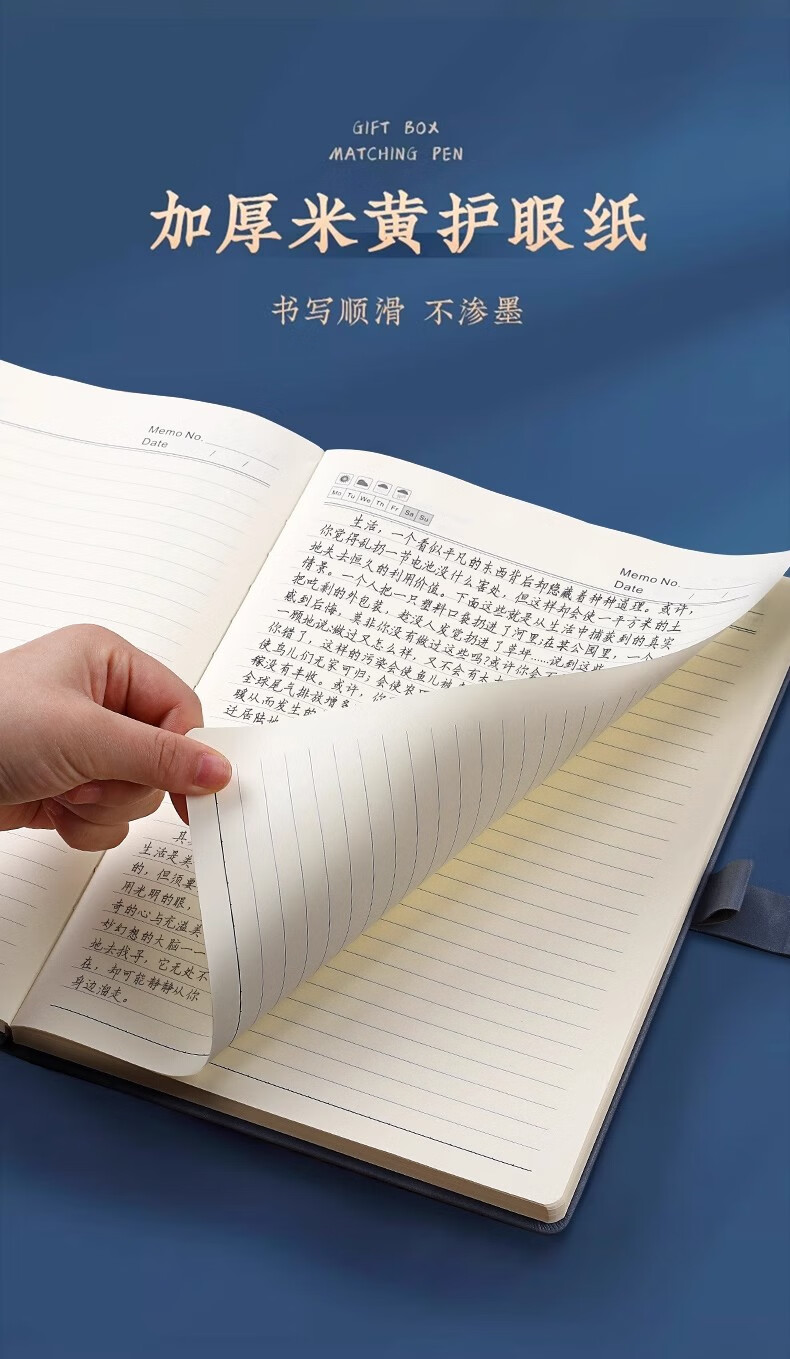 GIFT BOX
MATCHING PEN
加厚米黄护眼纸
书写顺滑 不渗墨
Memo No.
Date / /
Mo Tu We Th Fr Sa Su
Memo No.
Date / /
生活，一个看似平凡的东西背后却隐藏着种种道理。或许，
你觉得乱扔一节电池没什么害处，但这样却会使一平方米的土
地失去恒久的利用价值。下面这些就是从生活中捕获到的真实
情景。一个人把一只塑料口袋扔进了河里；在某公园里，一个
把吃剩的外包装，趁没人发觉扔进了草坪……说到这些
感到后悔，莫非你没有做过这些吗？或许你会不
一顾地说：做过又怎么样，又不会有太大
你错了，这样的污染会使鱼儿
使鸟儿们无家可归；会使农
稼没有丰收。或许，你
全球尾气排放增多
暖从而发生的
过居陆地
其
生活是美
的，但须要
用光明的眼，
奇的心与充溢美
妙幻想的大脑一一
地去找寻，它无处不
在，却可能静静从你
身边溜走。